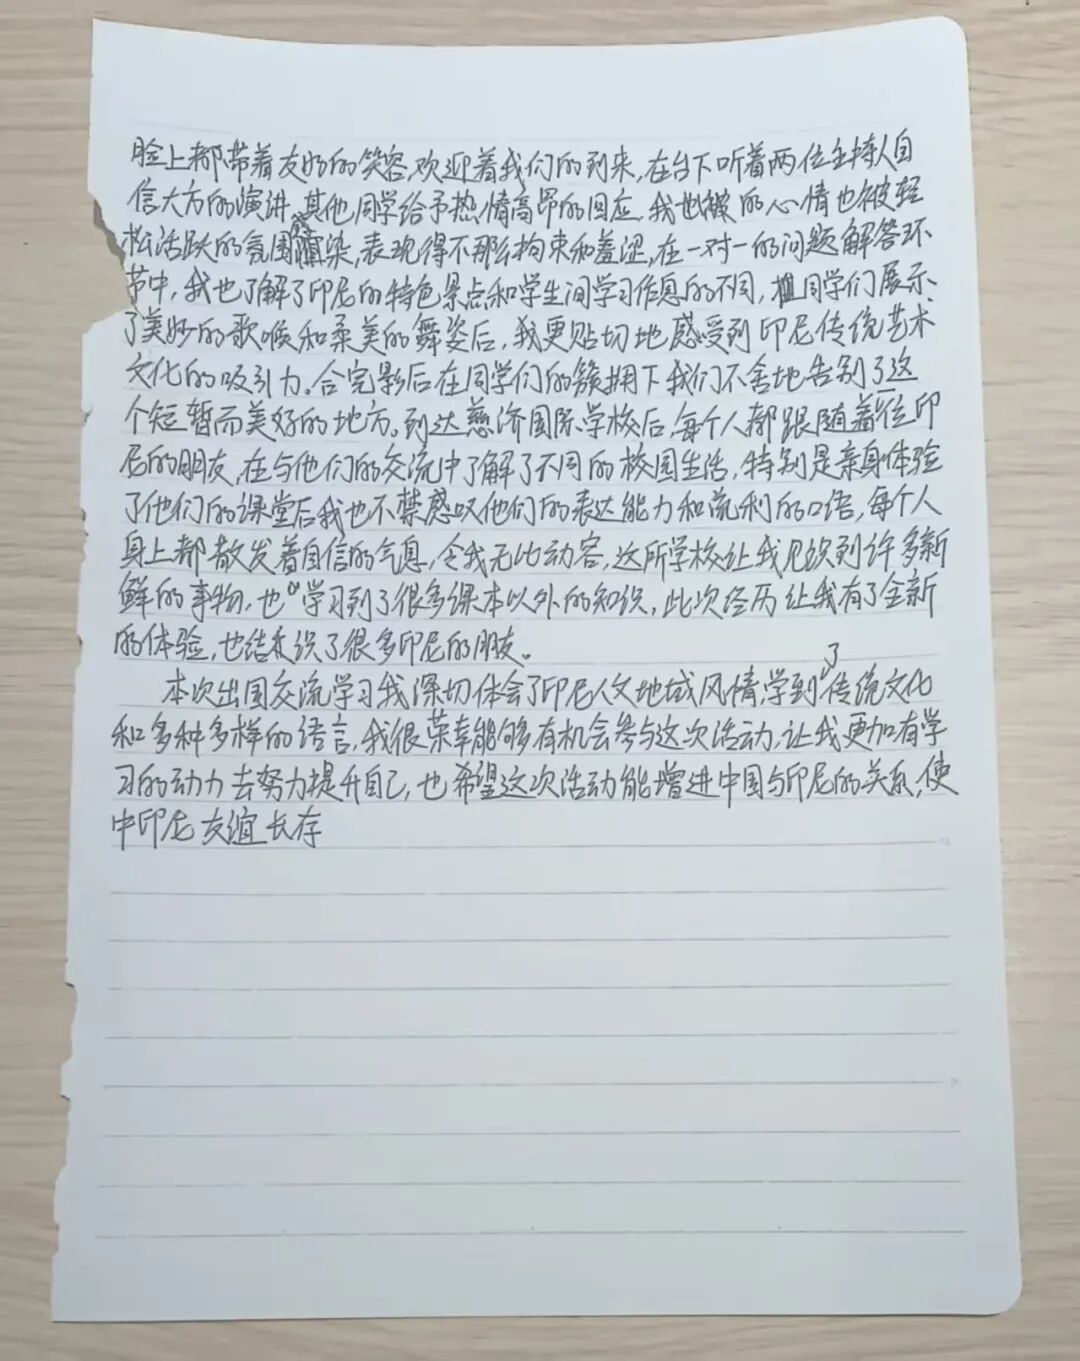 脸上都带着友好的笑容,欢迎着我们的到来,在台下听着两位主持人自
信大方的演讲,其他同学给予热情高昂的回应,我的心情也被轻
松活跃的氛围渲染,表现得不那么拘束和羞涩,在一对一的问题解答环
节中,我也了解了印尼的特色景点和学生间学习作息的不同,同学们展示
了美妙的歌喉和柔美的舞姿后,我更贴切地感受到印尼传统艺术
文化的吸引力。合完影后在同学们的簇拥下我们不舍地告别了这
个短暂而美好的地方。到达慈济国际学校后,每个人都跟随着一位印
尼的朋友,在与他们的交流中了解了不同的校园生活,特别是亲身体验
了他们的课堂后我也不禁感叹他们的表达能力和流利的口语,每个人
身上都散发着自信的气息,令我无比动容,这所学校让我见识到许多新
鲜的事物,也学习到了很多课本以外的知识,此次经历让我有了全新
的体验,也结识了很多印尼的朋友。
本次出国交流学习我深切体会了印尼人文地域风情,学到了传统文化
和多种多样的语言,我很荣幸能够有机会参与这次活动,让我更加有学
习的动力去努力提升自己,也希望这次活动能增进中国与印尼的关系,使
中印尼友谊长存